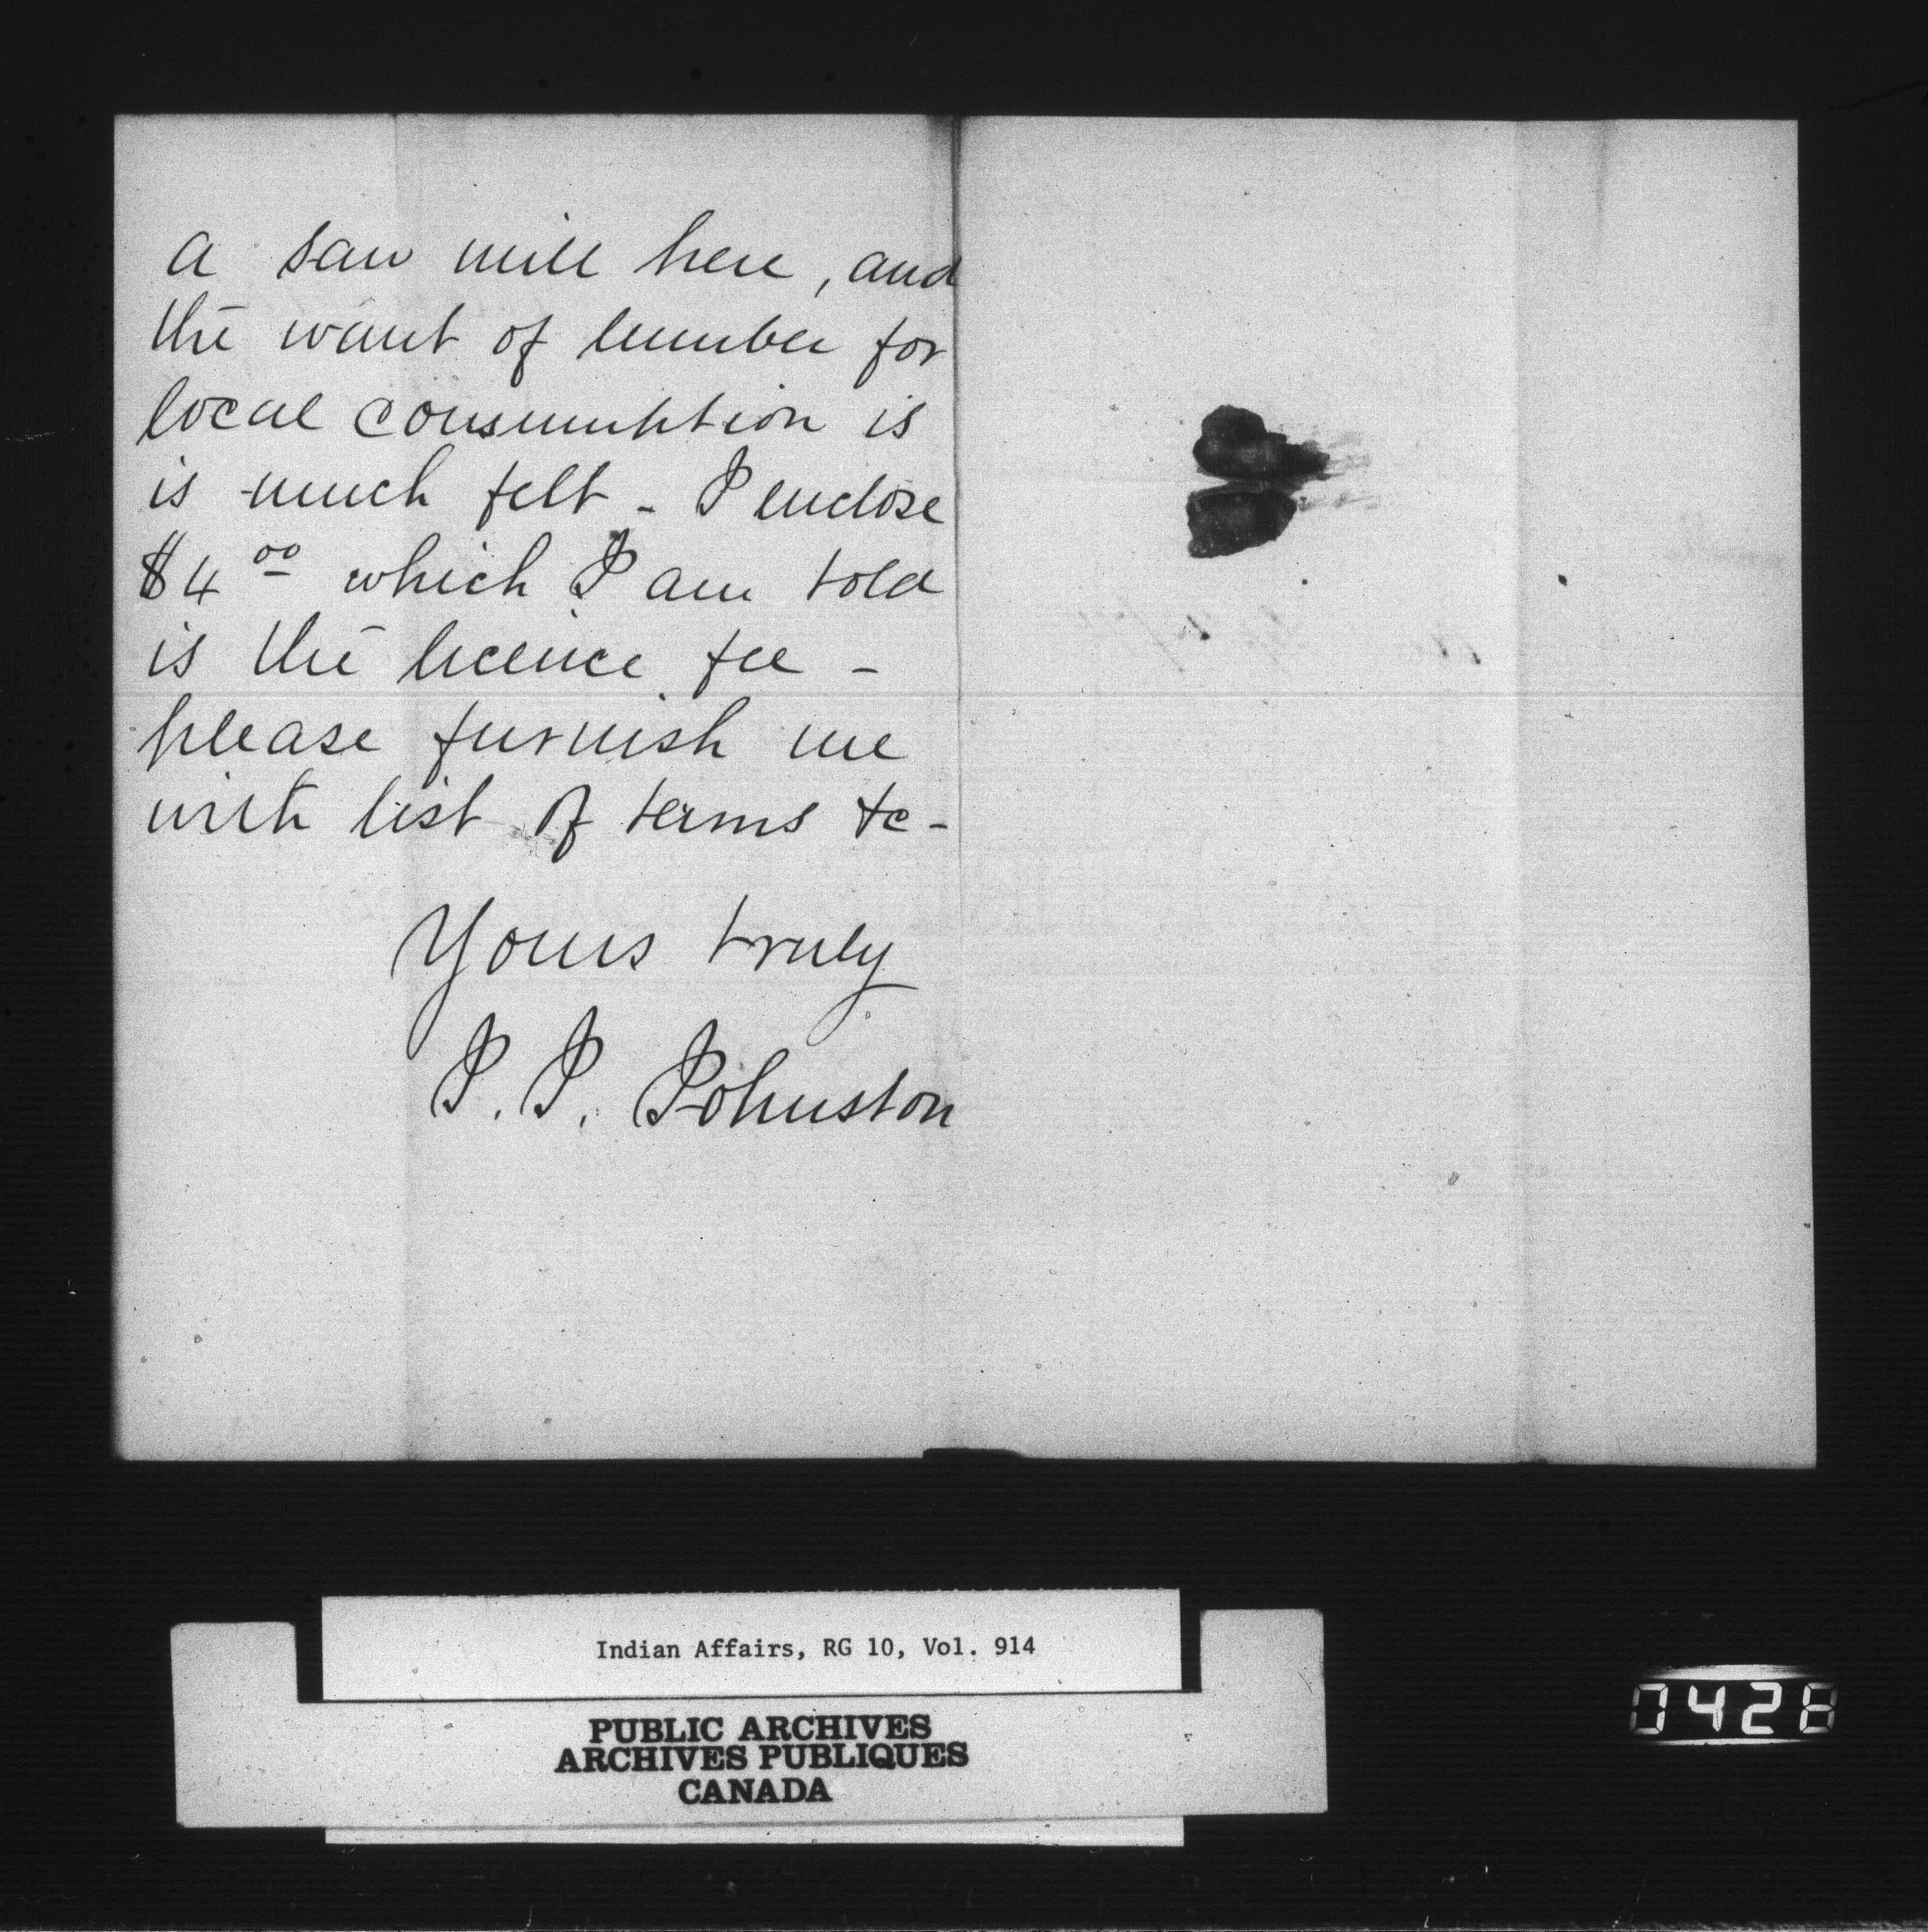 a saw mill here, and
the want of lumber for
local consumption is
is much felt - I enclose
$4 00 which I am told
is the licence fee -
please furnish me
with list of terms &c -
Yours truly
J. J. Johnston
Indian Affairs, RG 10, Vol. 914
PUBLIC ARCHIVES
ARCHIVES PUBLIQUES
CANADA
0428